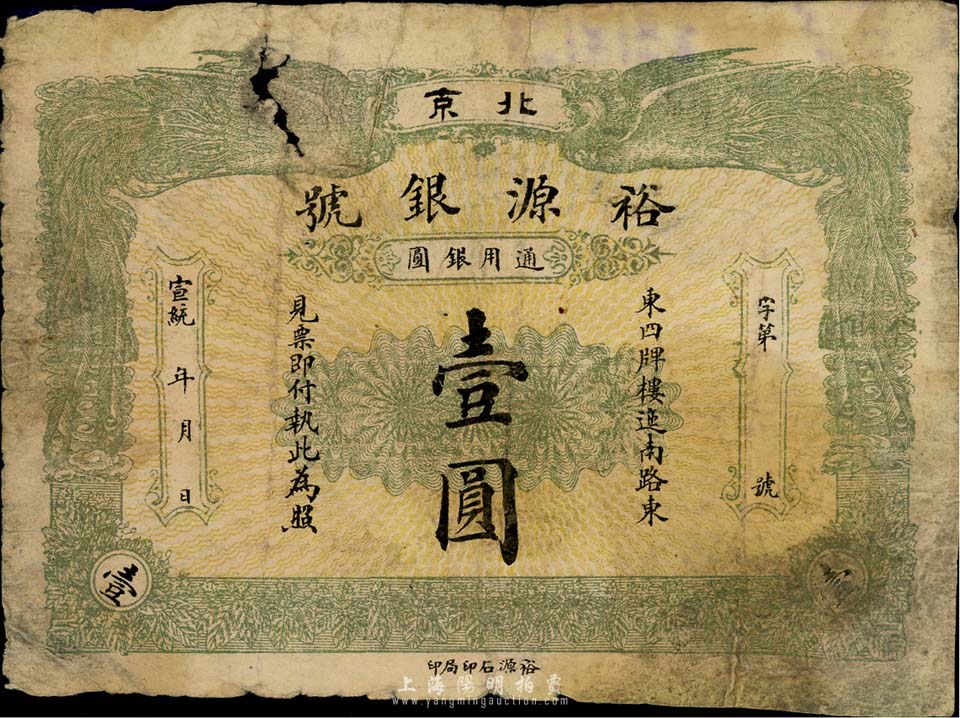 北京
裕源銀號
通用銀圓
字第 號
東四牌樓迤南路東
壹圓
見票即付執此為照
宣統 年 月 日
壹
裕源石印局印
上海陽明拍賣
www.yangmingauction.com